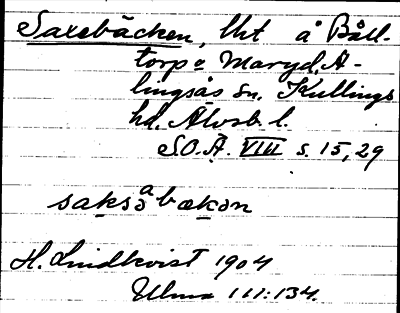 Saxebäcken, lht å Båll-
torp o Maryd, A-
lingsås sn. Kullings
hd. Älvsb. l.
SOÄ VIII s. 15, 29
saksəbakən
a
H. Lindkvist 1904
Ulma 111:134.